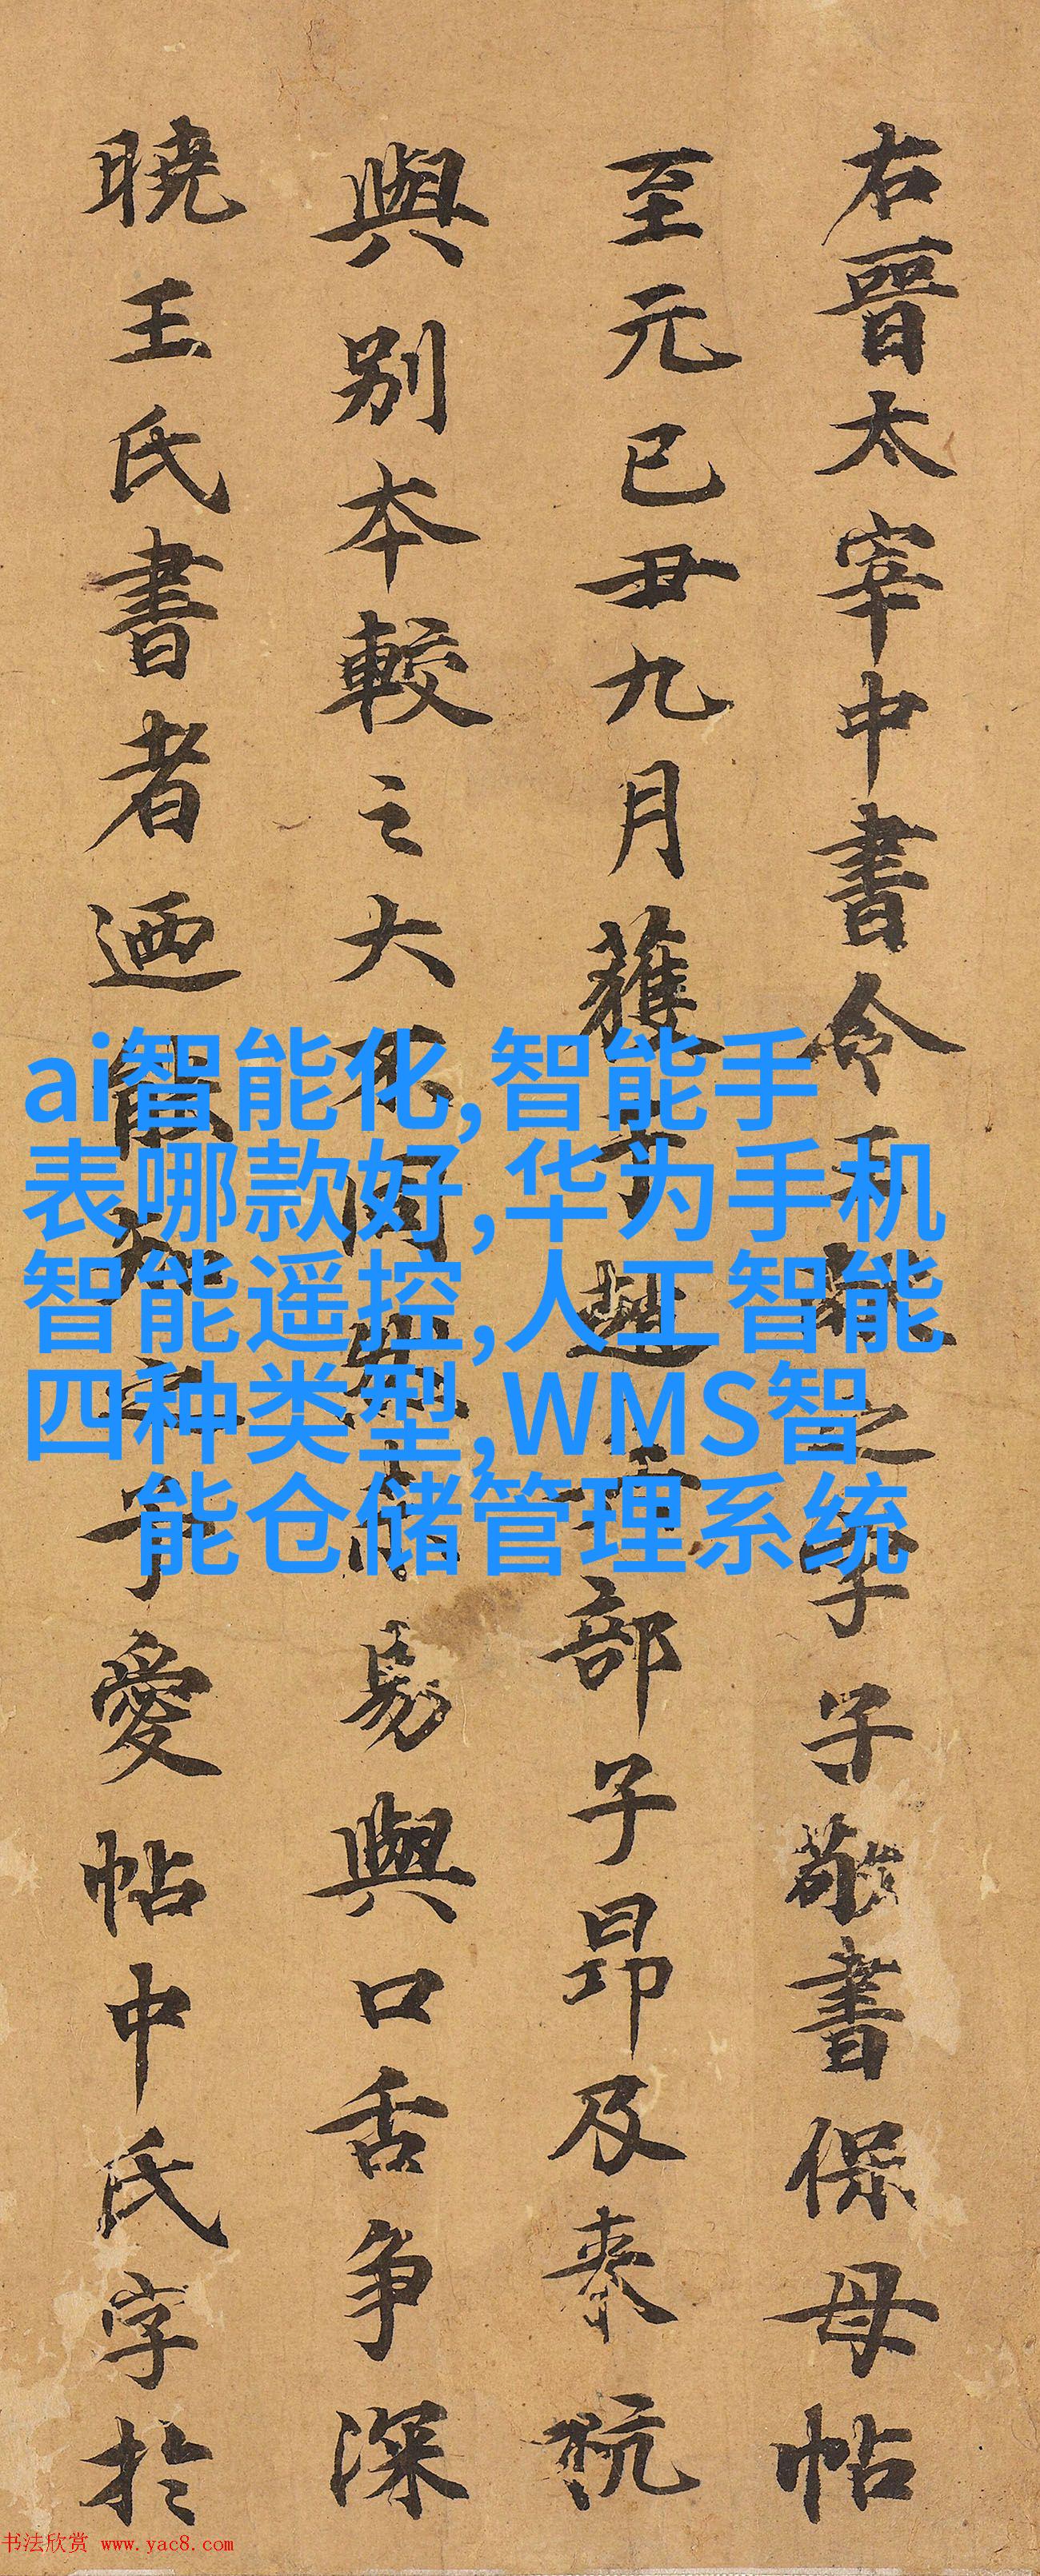 右晉太宰中書令王獻之字子敬書保母帖
至元己丑九月獲于趙工部子昂及来杭
與别本較之大不同易與口舌爭深
曉王氏書者迺能知之予愛帖中氏字於
ai智能化,智能手
表哪款好,华为手机
智能遥控,人工智能
四种类型,WMS智
能仓储管理系统
书法欣赏 www.yac8.com